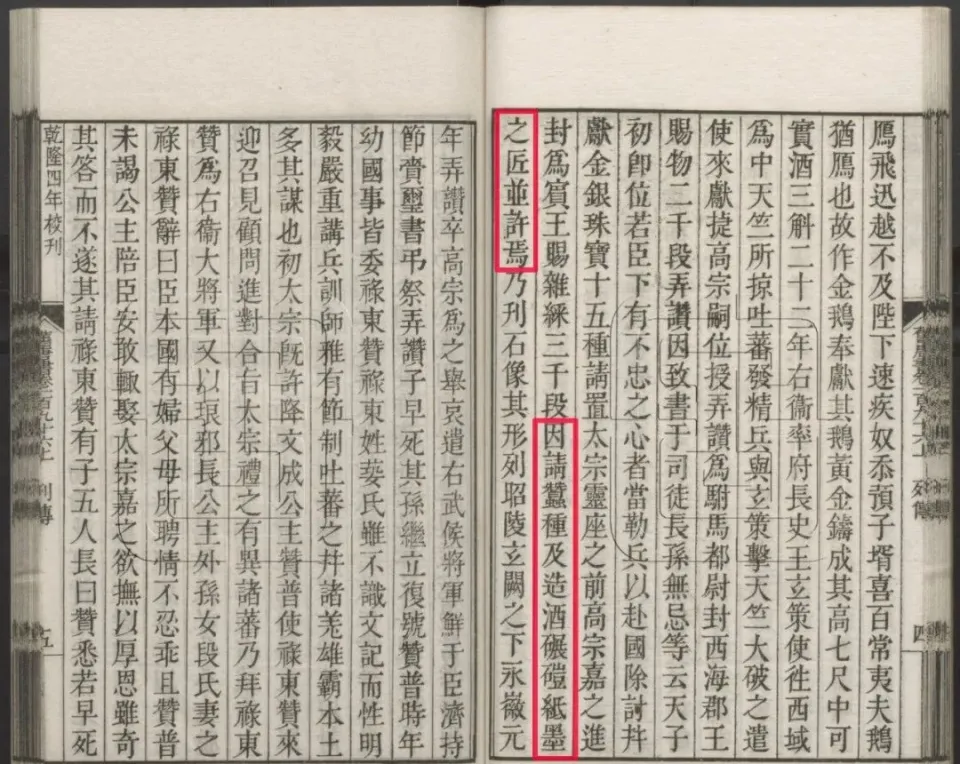 鴈飛迅越不及陛下速疾奴忝預子壻喜百常夷夫鵝
猶鴈也故作金鵝奉獻其鵝黃金鑄成其高七尺中可
實酒三斛二十二年右衞率府長史王玄策使徃西域
爲中天竺所掠吐蕃發精兵與玄策擊天竺大破之遣
使來獻捷高宗嗣位授弄讚爲駙馬都尉封西海郡王
賜物二千段弄讚因致書于司徒長孫無忌等云天子
初卽位若臣下有不忠之心者當勒兵以赴國除討幷
獻金銀珠寶十五種請置太宗靈座之前高宗嘉之進
封爲賓王賜雜綵三千段因請蠶種及造酒碾磑紙墨
之匠並許焉乃刊石像其形列昭陵玄闕之下永徽元
年弄讚卒高宗爲之舉哀遣右武候將軍鮮于臣濟持
節齎璽書弔祭弄讚子早死其孫繼立復號贊普時年
幼國事皆委祿東贊祿東姓䓾氏雖不識文記而性明
毅嚴重講兵訓師雅有節制吐蕃之幷諸羗雄霸本土
多其謀也初太宗旣許降文成公主贊普使祿東贊來
迎召見顧問進對合旨太宗禮之有異諸蕃乃拜祿東
贊爲右衞大將軍又以琅邪長公主外孫女段氏妻之
祿東贊辭曰臣本國有婦父母所聘情不忍乖且贊普
未謁公主陪臣安敢輙娶太宗嘉之欲撫以厚恩雖奇
其答而不遂其請祿東贊有子五人長曰贊悉若早死
乾隆四年校刊